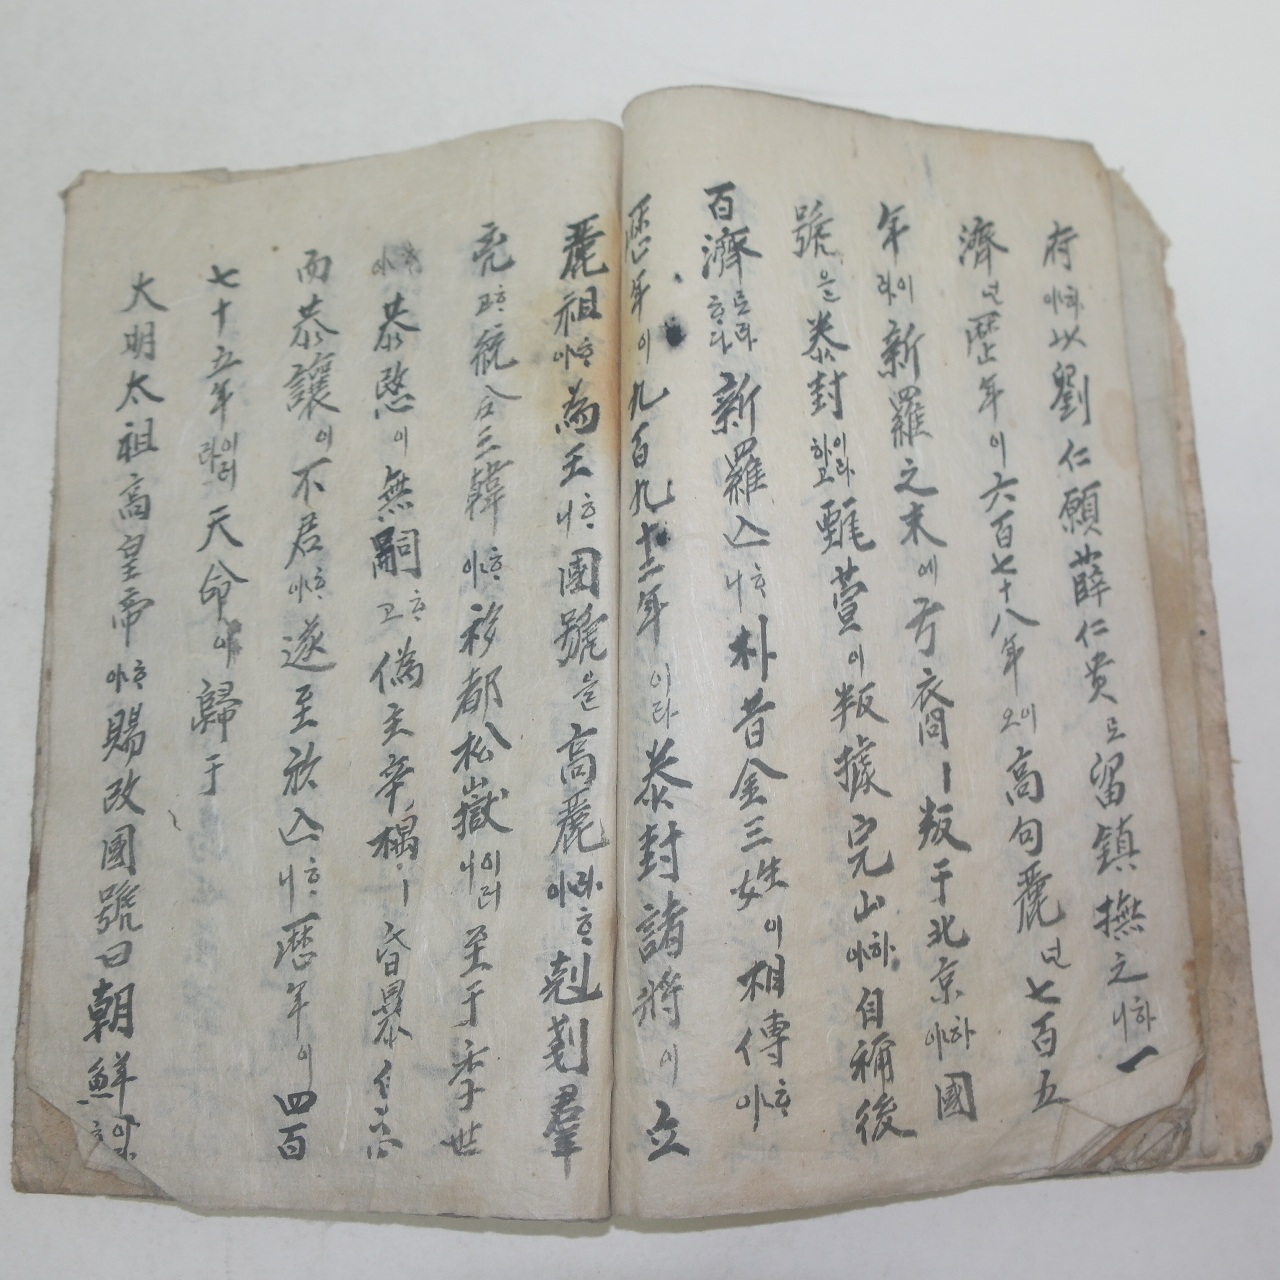 府하야以劉仁願薛仁貴로留鎮撫之하니一
濟는歷年이六百七十八年이오高句麗는七百五
年이라新羅之末에弓裔ㅣ叛于北京하야國
號을泰封이라하고甄萱이叛據完山하야自稱後
百濟르라ᄒᆞ다新羅亾ᄒᆞ니朴昔金三姓이相傳ᄒᆞ야
歷年이九百九十二年이라泰封諸將이立
麗祖ᄒᆞ야為王ᄒᆞ니國號을高麗이라ᄒᆞ야剋剗羣
兇ᄒᆞ고統合三韓ᄒᆞ야移都松嶽이러니至于季世
ᄒᆞ야恭愍이無嗣ᄒᆞ고偽主辛禑ㅣ昏暴自恣
而恭讓이不君ᄒᆞ야遂至於亾ᄒᆞ니歷年이四百
七十五年이러라天命이歸于
大明太祖高皇帝ᄒᆞ야賜改國號曰朝鮮이라ᄒᆞ